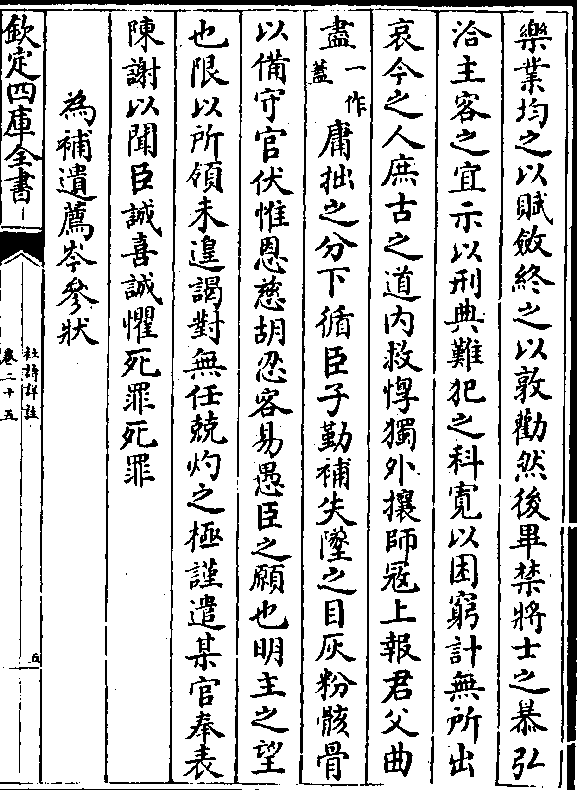 樂業均之以賦斂終之以敦勸然後畢禁將士之暴弘
洽主客之宜示以刑典難犯之科寛以困窮計無所出
哀今之人庶古之道内救惸獨外攘師寇上報君父曲
盡一作蓋庸拙之分下循臣子勤補失墜之目灰粉骸骨
以備守官伏惟恩慈胡忍容易愚臣之願也明主之望
也限以所領未遑謁對無任兢灼之極謹遣某官奉表
陳謝以聞臣誠喜誠懼死罪死罪
為補遺薦岑參狀
欽定四庫全書
杜詩詳註
卷二十五
五